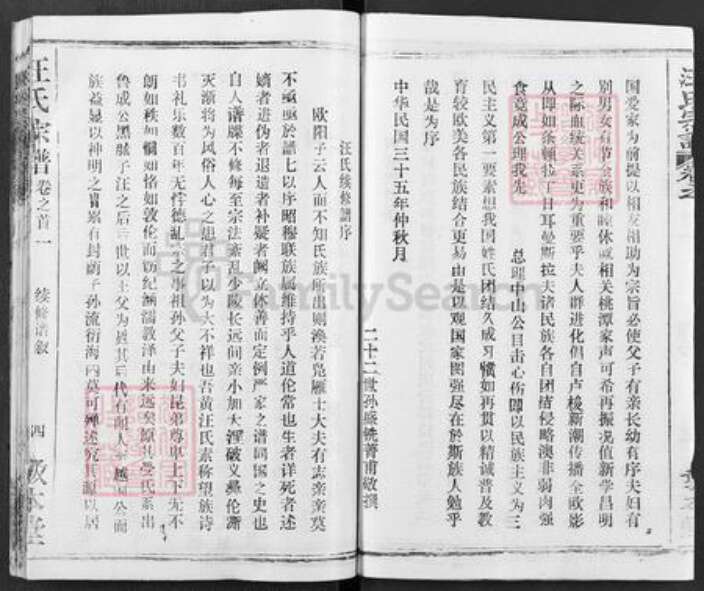 国爱家为前提以相友相助为宗旨必使父子有亲长幼有序夫妇有
别男女有节合族和睦休戚相关桃潭家声可希再振况值新学昌明
之际血统关系更为重要乎夫人群进化倡自卢梭新潮传播全欧影
从即如条顿拉丁日耳曼斯拉夫诸民族各自团结侵略澳非弱肉强
食竟成公理我先 总理中山公目击心伤即以民族主义为三
民主义第一要素想我国姓氏团结久成习惯如再贯以精诚普及教
育较欧美各民族结合更易由是以观国家图强尽在於斯族人勉乎
哉是为序
二十二世孙盛铣菁甫敬撰
中华民国三十五年仲秋月
汪氏续修谱序
欧阳子云人而不知氏族所出则涣若凫雁士大夫有志亲亲莫
不亟亟於谱七以序昭穆联族属维持乎人道伦常也生者详死者述
嫡者进伪者退遗者补疑者阙立体善而定例严家之谱同国之史也
自人谱牒不修每至宗法紊乱少陵长远间亲小加大淫破义彝伦渐
灭濒将为风俗人心之患君子以为大不祥也吾黄汪氏素称望族诗
书礼乐数百年无悖德乱常之事祖孙父子夫妇昆弟尊卑上下无不
朗如秩如恻如恪如敦伦而饬纪涵濡教泽由来远矣原其受氏系出
鲁成公黑肱子汪之后三世以王父为姓其后代有闻人至越国公而
族益显以神明之胄累有封爵子孙流衍海内莫可殚述究其源以居
汪氏宗谱 卷之首一 续修谱叙 四 敬本堂
汪氏宗谱